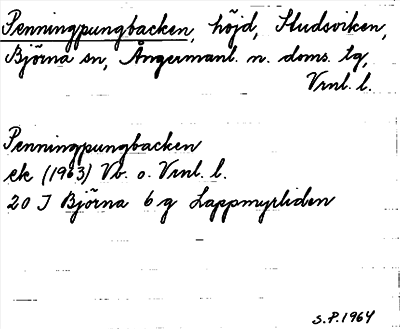 Penningpungbacken, höjd, Studsviken,
Björna sn, Ångermanl. n. doms. tg,
Vrnl. l.
Penningpungbacken
ek (1963) Vb. o. Vrnl. l.
20 I Björna 6 g Lappmyrliden
S.P. 1964